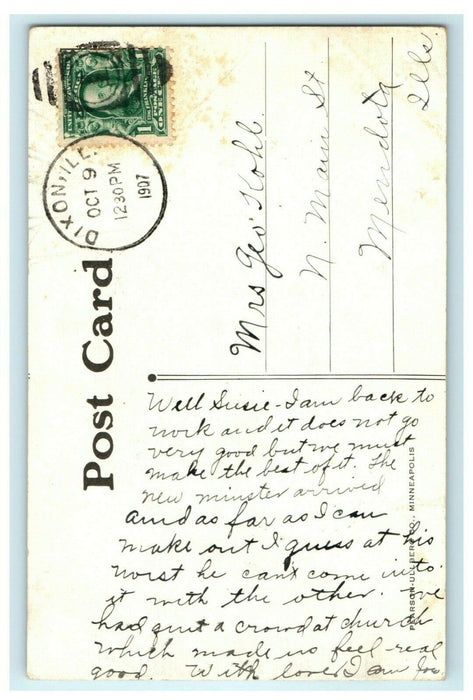 DIXON, ILL.
OCT 9
1230 PM
1907
1
Post Card
Mrs Geo Kohl
N. Main St
Mendota
Ills
Well Susie - I am back to
work and it does not go
very good but we must
make the best of it. The
new minster arrived
and as far as I can
make out I guess at his
worst he cant come in to
it with the other. we
had quit a crowd at church
which made us feel real
good. With love I am
PEARSON-ULLBERG CO., MINNEAPOLIS